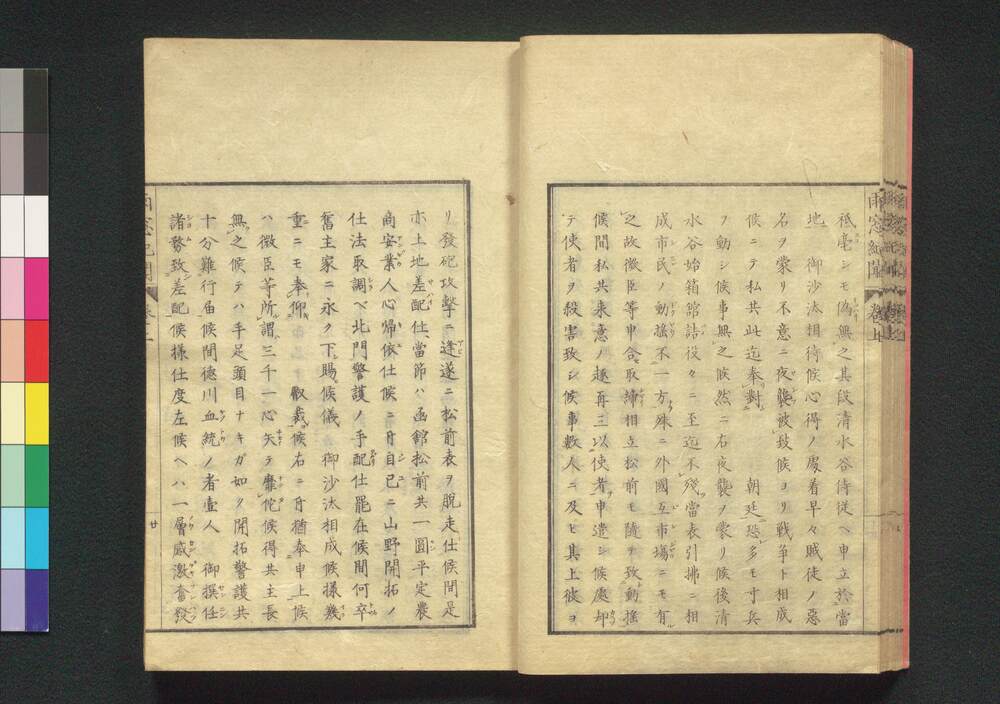 雨窓紀聞 卷上
秖毫シモ偽無之其段清水谷侍從ヘ申立於當
地 御沙汰相待候心得ノ處着早々賊徒ノ惡
名ヲ蒙リ不意ニ夜襲被致候ヨリ戰争ト相成
候ニテ私共此迄奉對 朝廷恐多モ寸兵
ヲ動シ候事無之候然ニ右夜襲ヲ蒙リ候後清
水谷始箱館詰役々ニ至迄不殘當表引拂ニ相
成市民ノ動搖不一方殊ニ外國互市場ニモ有
之故微臣等申合取締相立松前モ隨テ致動搖
候間私共來意ノ趣再三以使者申遣シ候處却
テ使者ヲ殺害致シ候事數人ニ及ヒ其上彼ヨ
リ發砲攻擊ニ逢遂ニ松前表ヲ脱走仕候間是
亦土地差配仕當節ハ函館松前共一圓平定農
商安業人心歸依仕候ニ付自己ニ山野開拓ノ
仕法取調ベ北門警護ノ手配仕罷在候間何卒
舊主家ニ永ク下賜候儀 御沙汰相成候樣幾
重ニモ奉仰 叡裁候右ニ付猶奉申上候
ハ微臣等所謂三千一心矢テ靡佗候得共主長
無之候テハ手足頭目ナキガ如ク開拓警護共
十分難行届候間徳川血統ノ者壹人 御撰任
諸務致差配候樣仕度左候ヘハ一層感激奮發
廿
雨窓紀聞